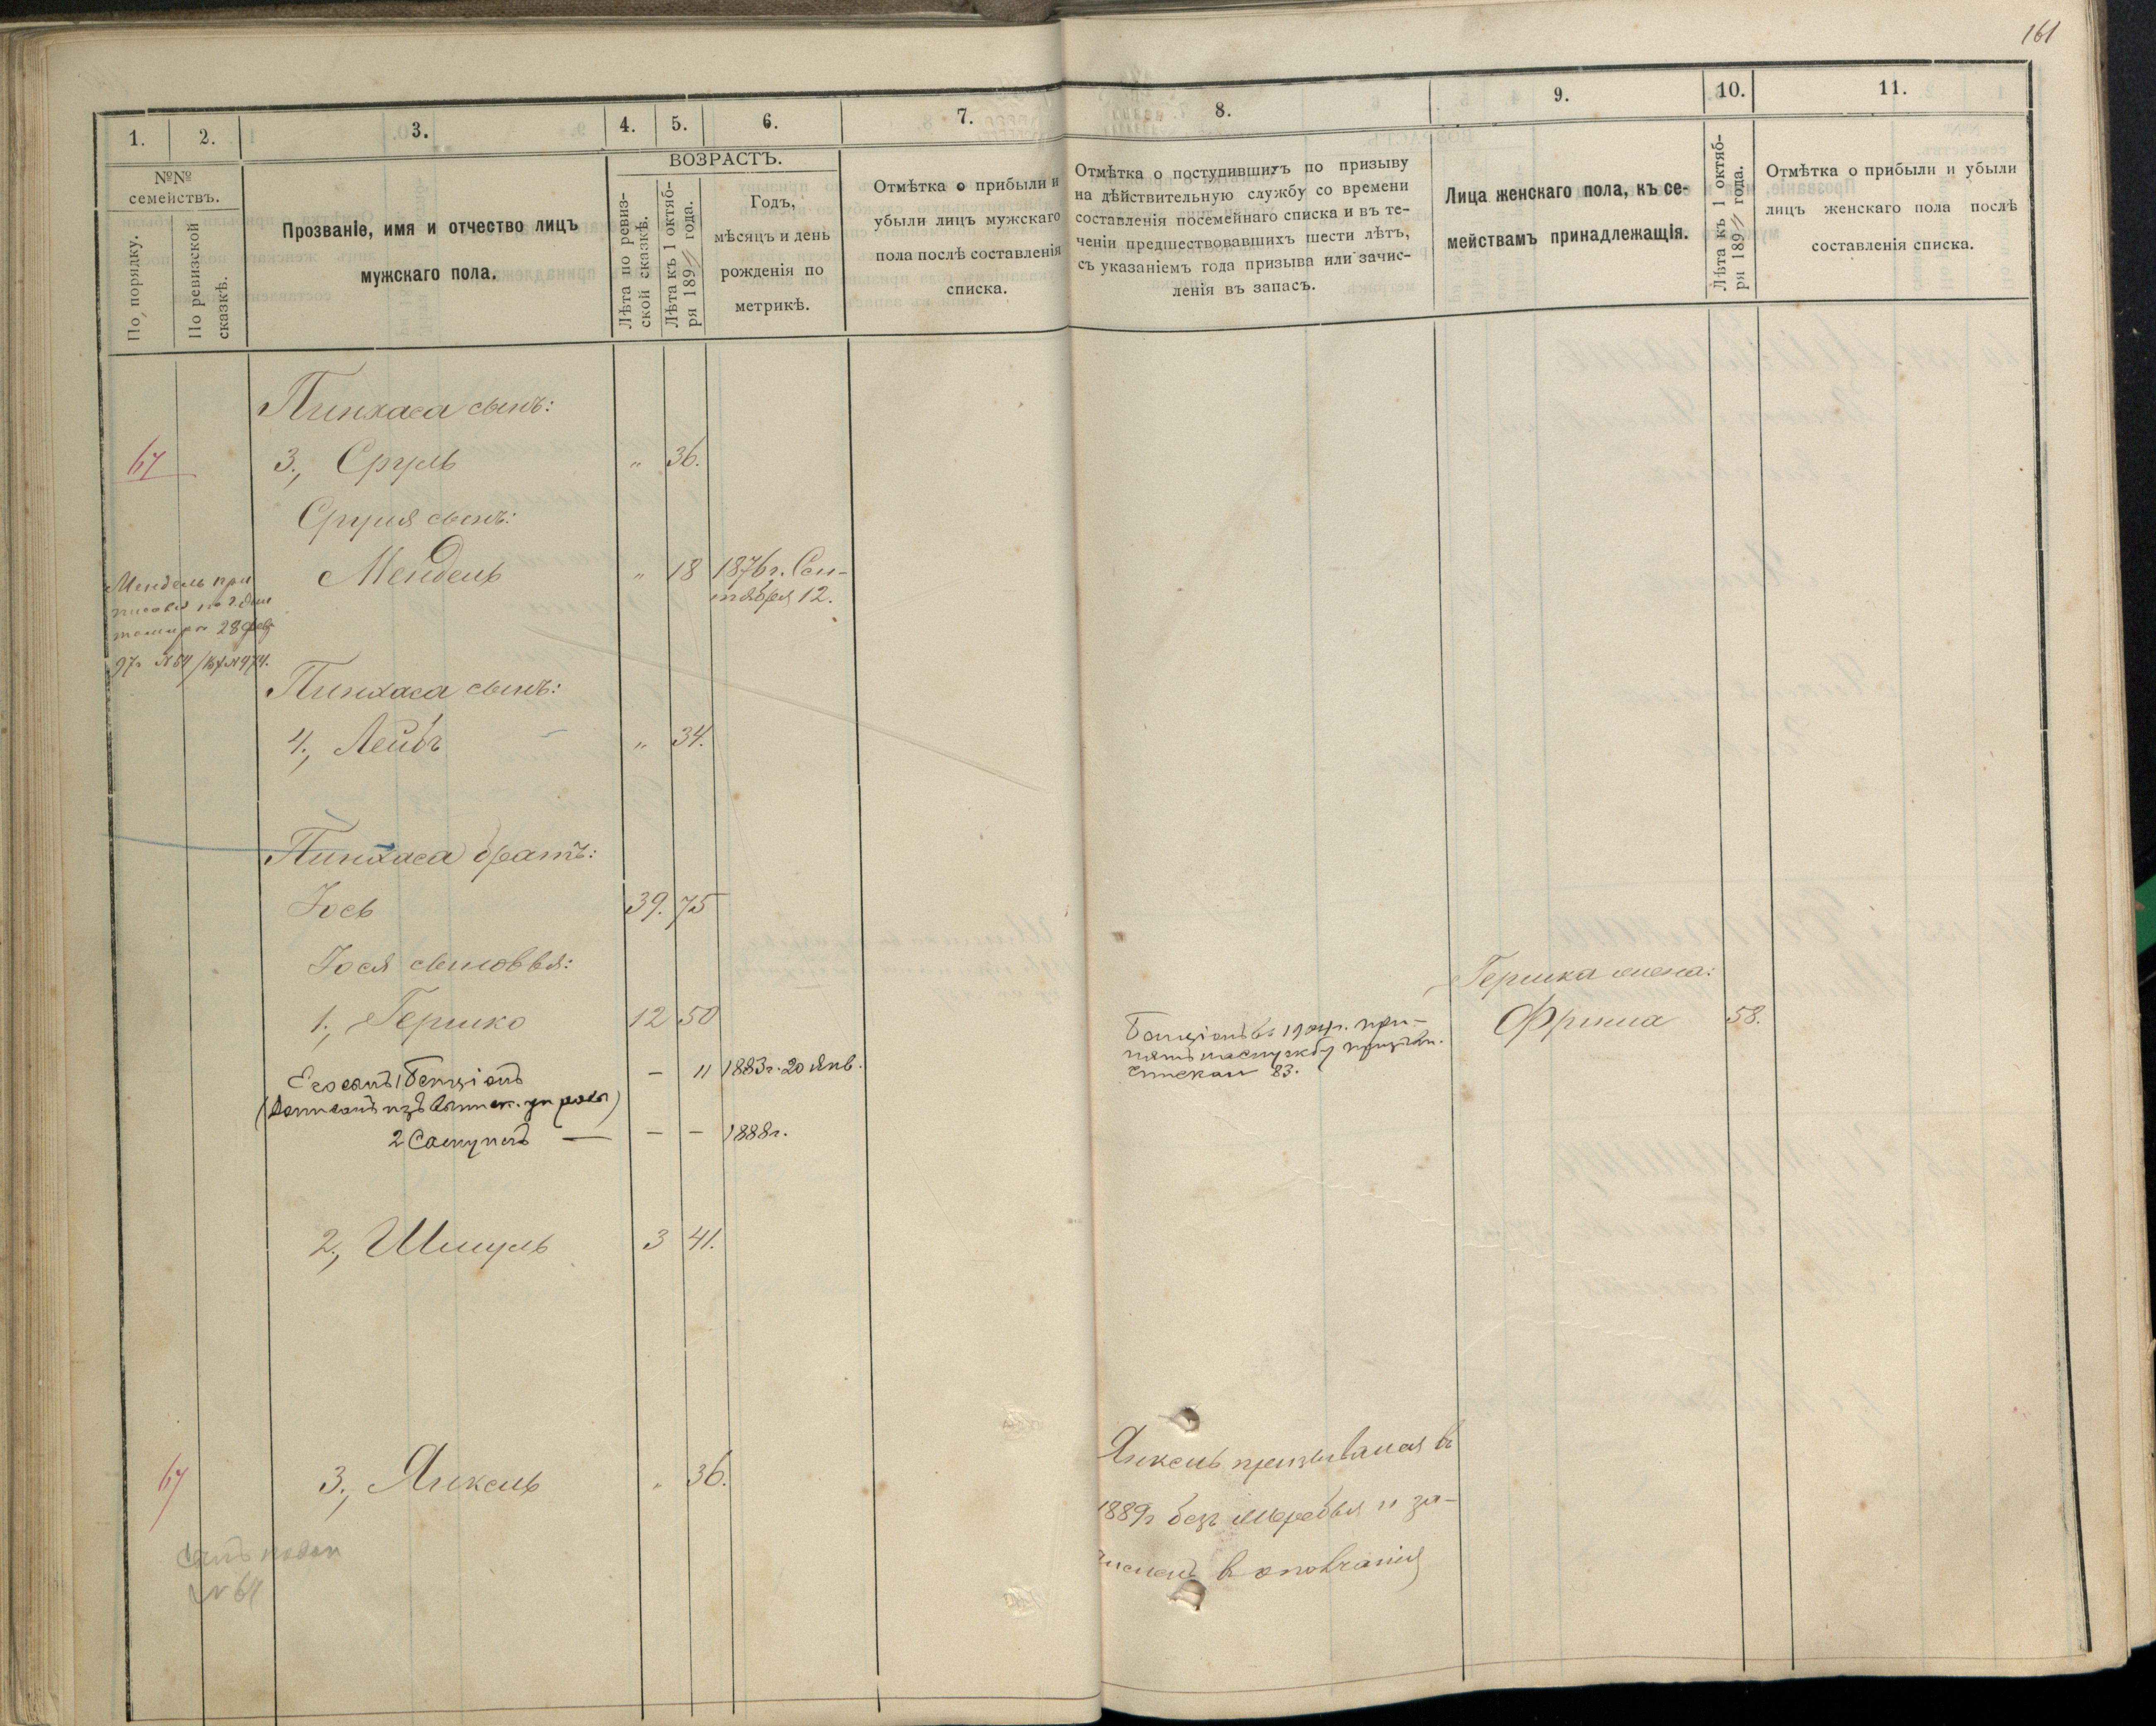 161
1. 2. 3. 4. 5. 6. 7. 8. 9. 10. 11.
№№
семействъ.
По порядку.
По ревизской
сказкѣ.
Прозваніе, имя и отчество лицъ
мужскаго пола.
ВОЗРАСТЪ.
Лѣта по ревиз-
ской сказкѣ.
Лѣта къ 1 октяб-
ря 189 года.
Годъ,
мѣсяцъ и день
рожденія по
метрикѣ.
Отмѣтка о прибыли и
убыли лицъ мужскаго
пола послѣ составленія
списка.
Отмѣтка о поступившихъ по призыву
на дѣйствительную службу со времени
составленія посемейнаго списка и въ те-
ченіи предшествовавшихъ шести лѣтъ,
съ указаніемъ года призыва или зачис-
ленія въ запасъ.
Лица женскаго пола, къ се-
мействамъ принадлежащія.
Лѣта къ 1 октяб-
ря 1894 года.
Отмѣтка о прибыли и убыли
лицъ женскаго пола послѣ
составленія списка.
Пинхаса сынъ:
67 3., Сруль " 36.
Сруля сынъ:
Мендель " 18 1876 г. Сен-
тября 12.
Мендель при
28 фев
97 г. № 54
Пинхаса сынъ:
4., Лейбъ " 34.
Пинхаса братъ:
Іось 39. 75
Іося сыновья:
Гершка жена:
1., Гершко 12 50
Фрима 58.
Его сынъ 1 Бенціонъ — 11 1883 г. 20 Янв.
Бенціонъ въ 1904 г. при-
нятъ на службу призывн.
списка 83.
2 — — 1888 г.
2., Шмуль 3 41.
67 3., Янкель " 36.
Янкель призывался въ
1889 г. безъ жеребья и за-
численъ въ ополченіе
№ 64